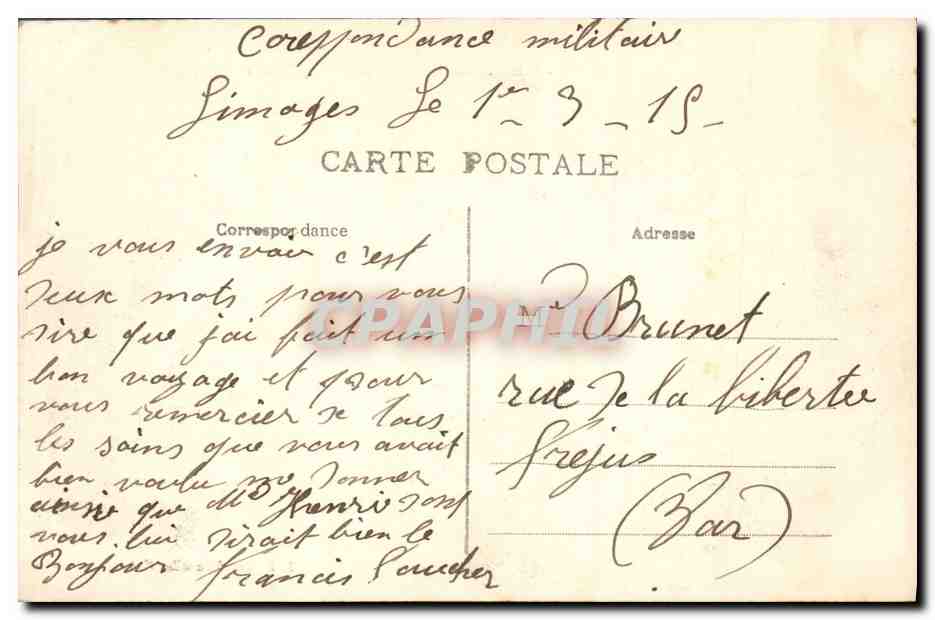 Corespondance militair
Limoges Le 1er 3 - 15 -
CARTE POSTALE
Correspondance
je vous envoie c'est
deux mots pour vous
dire que j'ai fait un
bon voyage et pour
vous remercier de tous
les soins que vous avait
bien voulu me donner
ainsie que Md Henri dont
vous lui dirait bien le
Bonjour Francis
Adresse
Md Brunet
rue de la libertee
frejus
(Var)
CPAPHIL